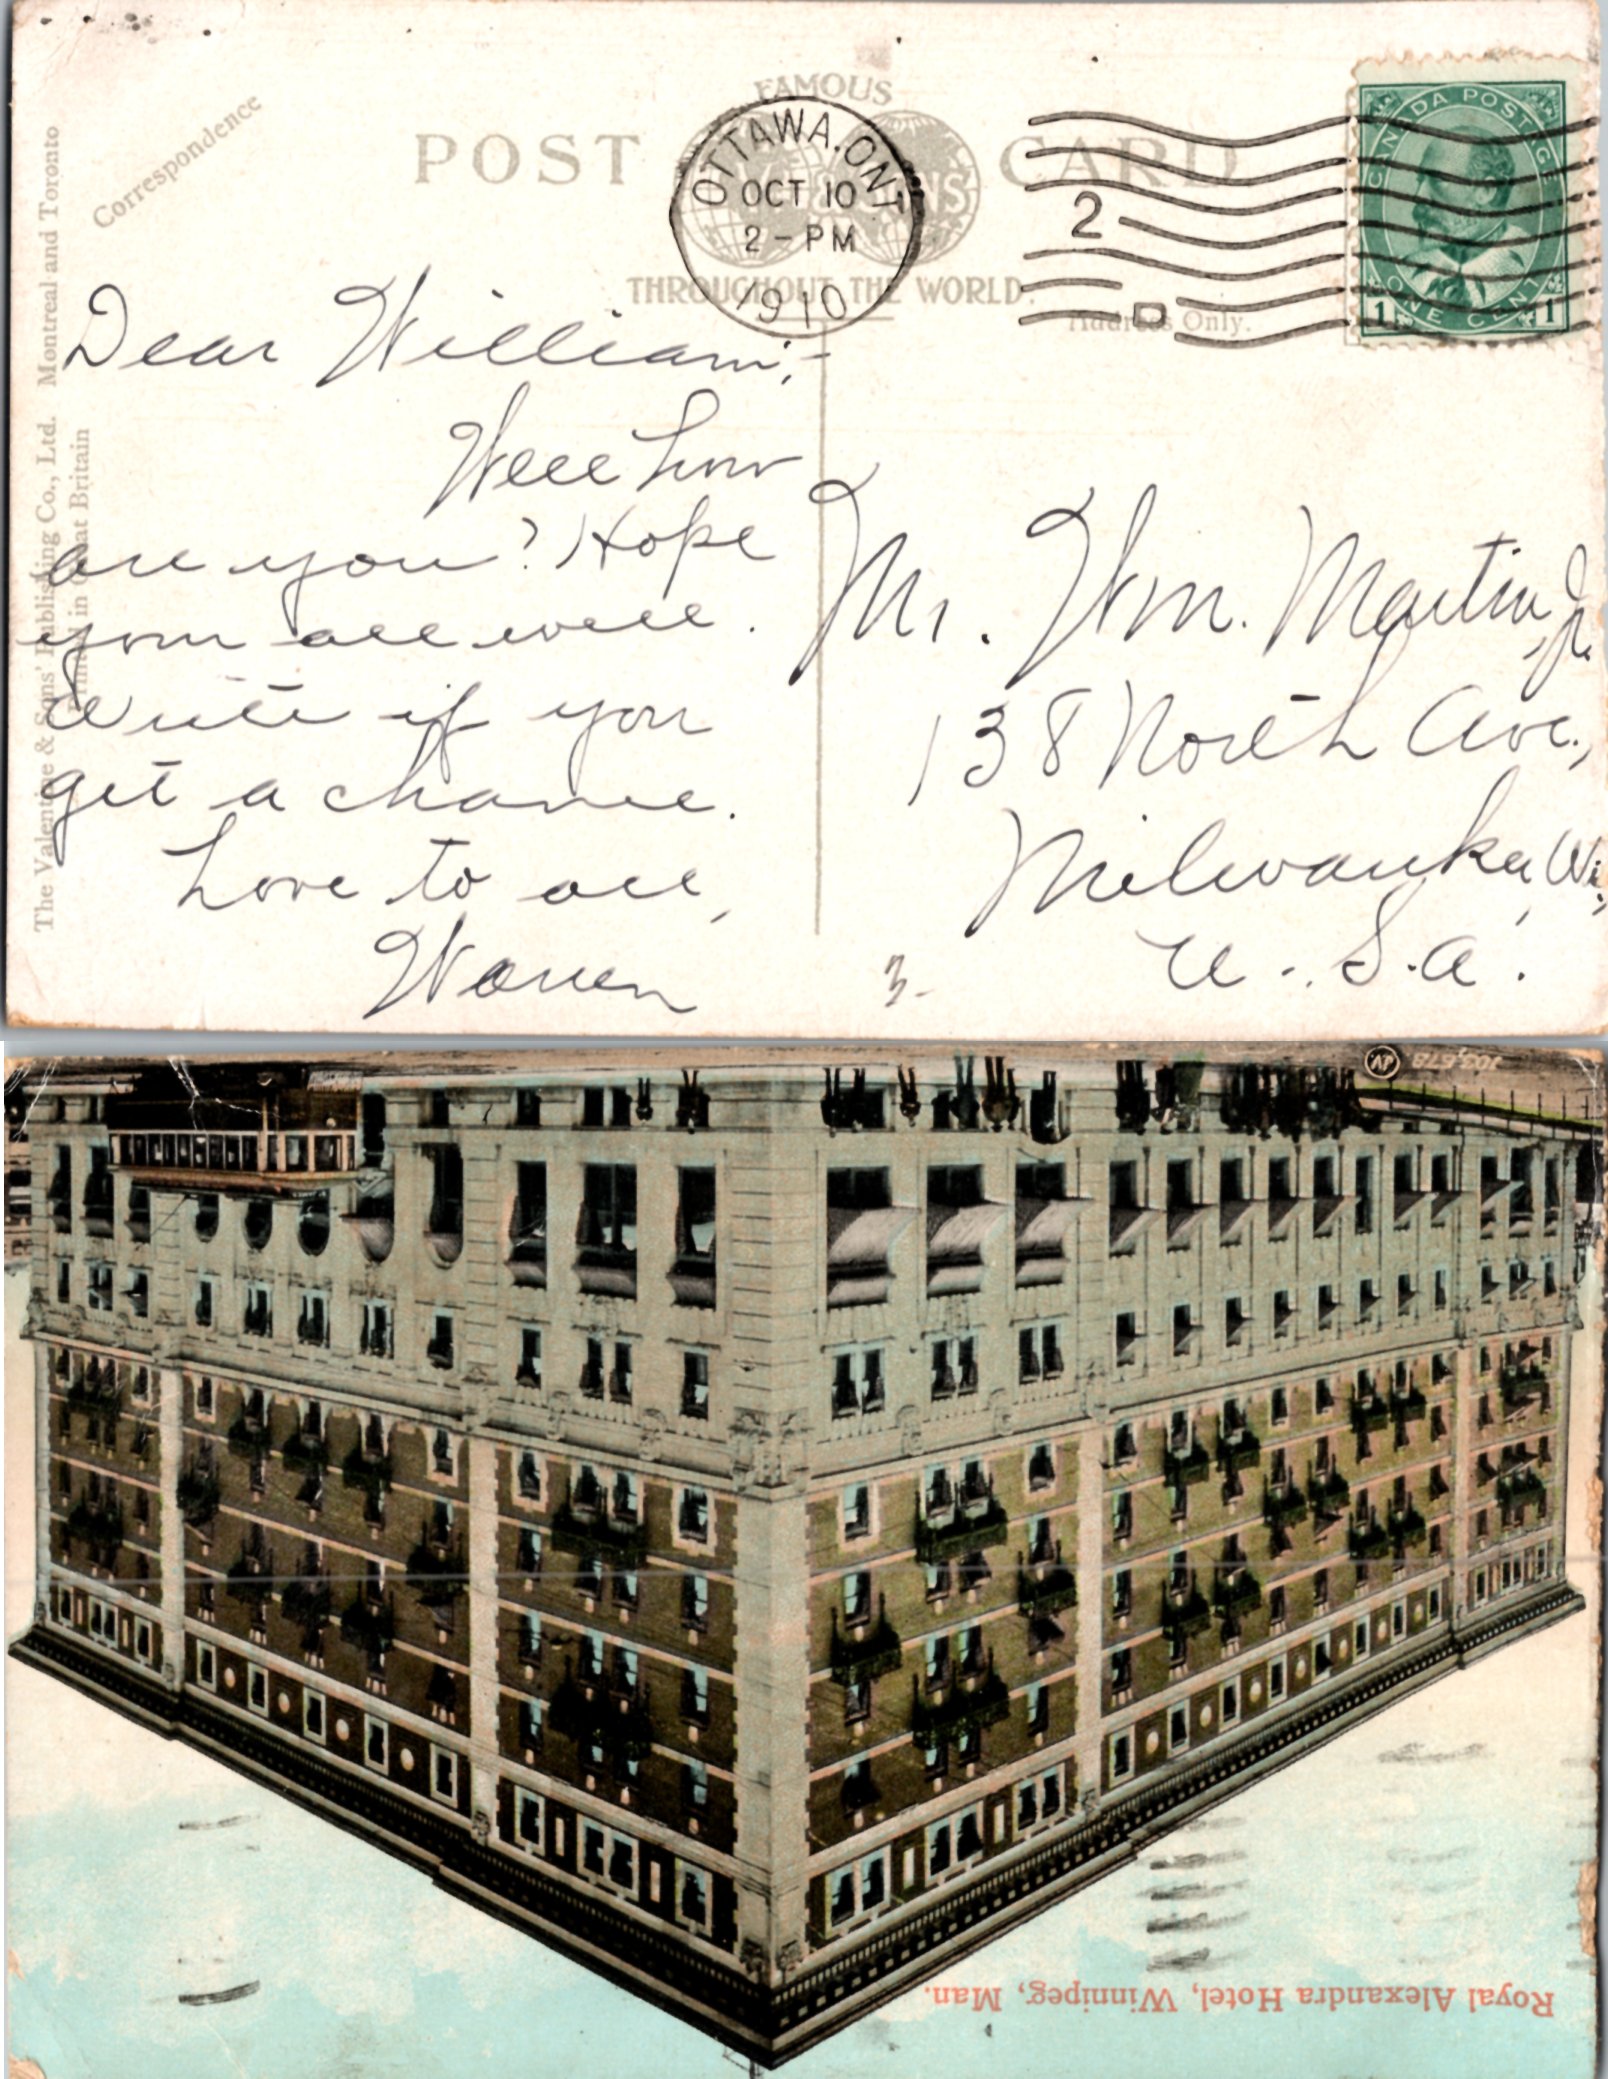 Correspondence
POST CARD
FAMOUS
THROUGHOUT THE WORLD.
Address Only.
OTTAWA. ONT
OCT 10
2 - PM
1910
2
CANADA POSTAGE
1 ONE CENT 1
The Valentine & Sons' Publishing Co., Ltd. Montreal and Toronto
Printed in Great Britain
Dear William;-
Well how
are you? Hope
your all well.
Write if you
get a chance.
Love to all,
Warren
Mr. Wm. Martin, Jr.
138 North Ave.,
Milwaukee, Wis,
U.S.A.
3-
JV
103,678
Royal Alexandra Hotel, Winnipeg, Man.